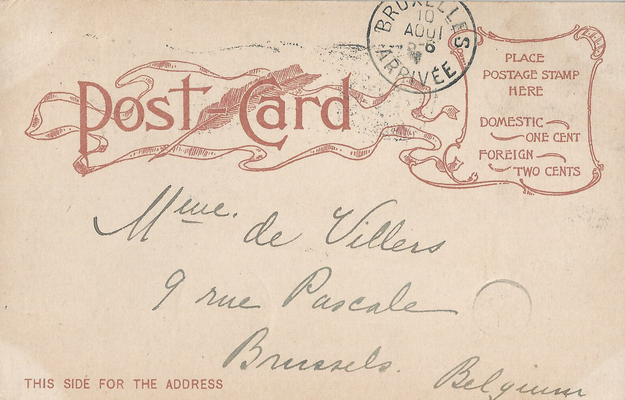 BRUXELLES
10
AOUT
ARRIVÉE
Post Card
PLACE
POSTAGE STAMP
HERE
DOMESTIC
ONE CENT
FOREIGN
TWO CENTS
Mme. de Villers
9 rue Pascale
Brussels.
Belgium
THIS SIDE FOR THE ADDRESS